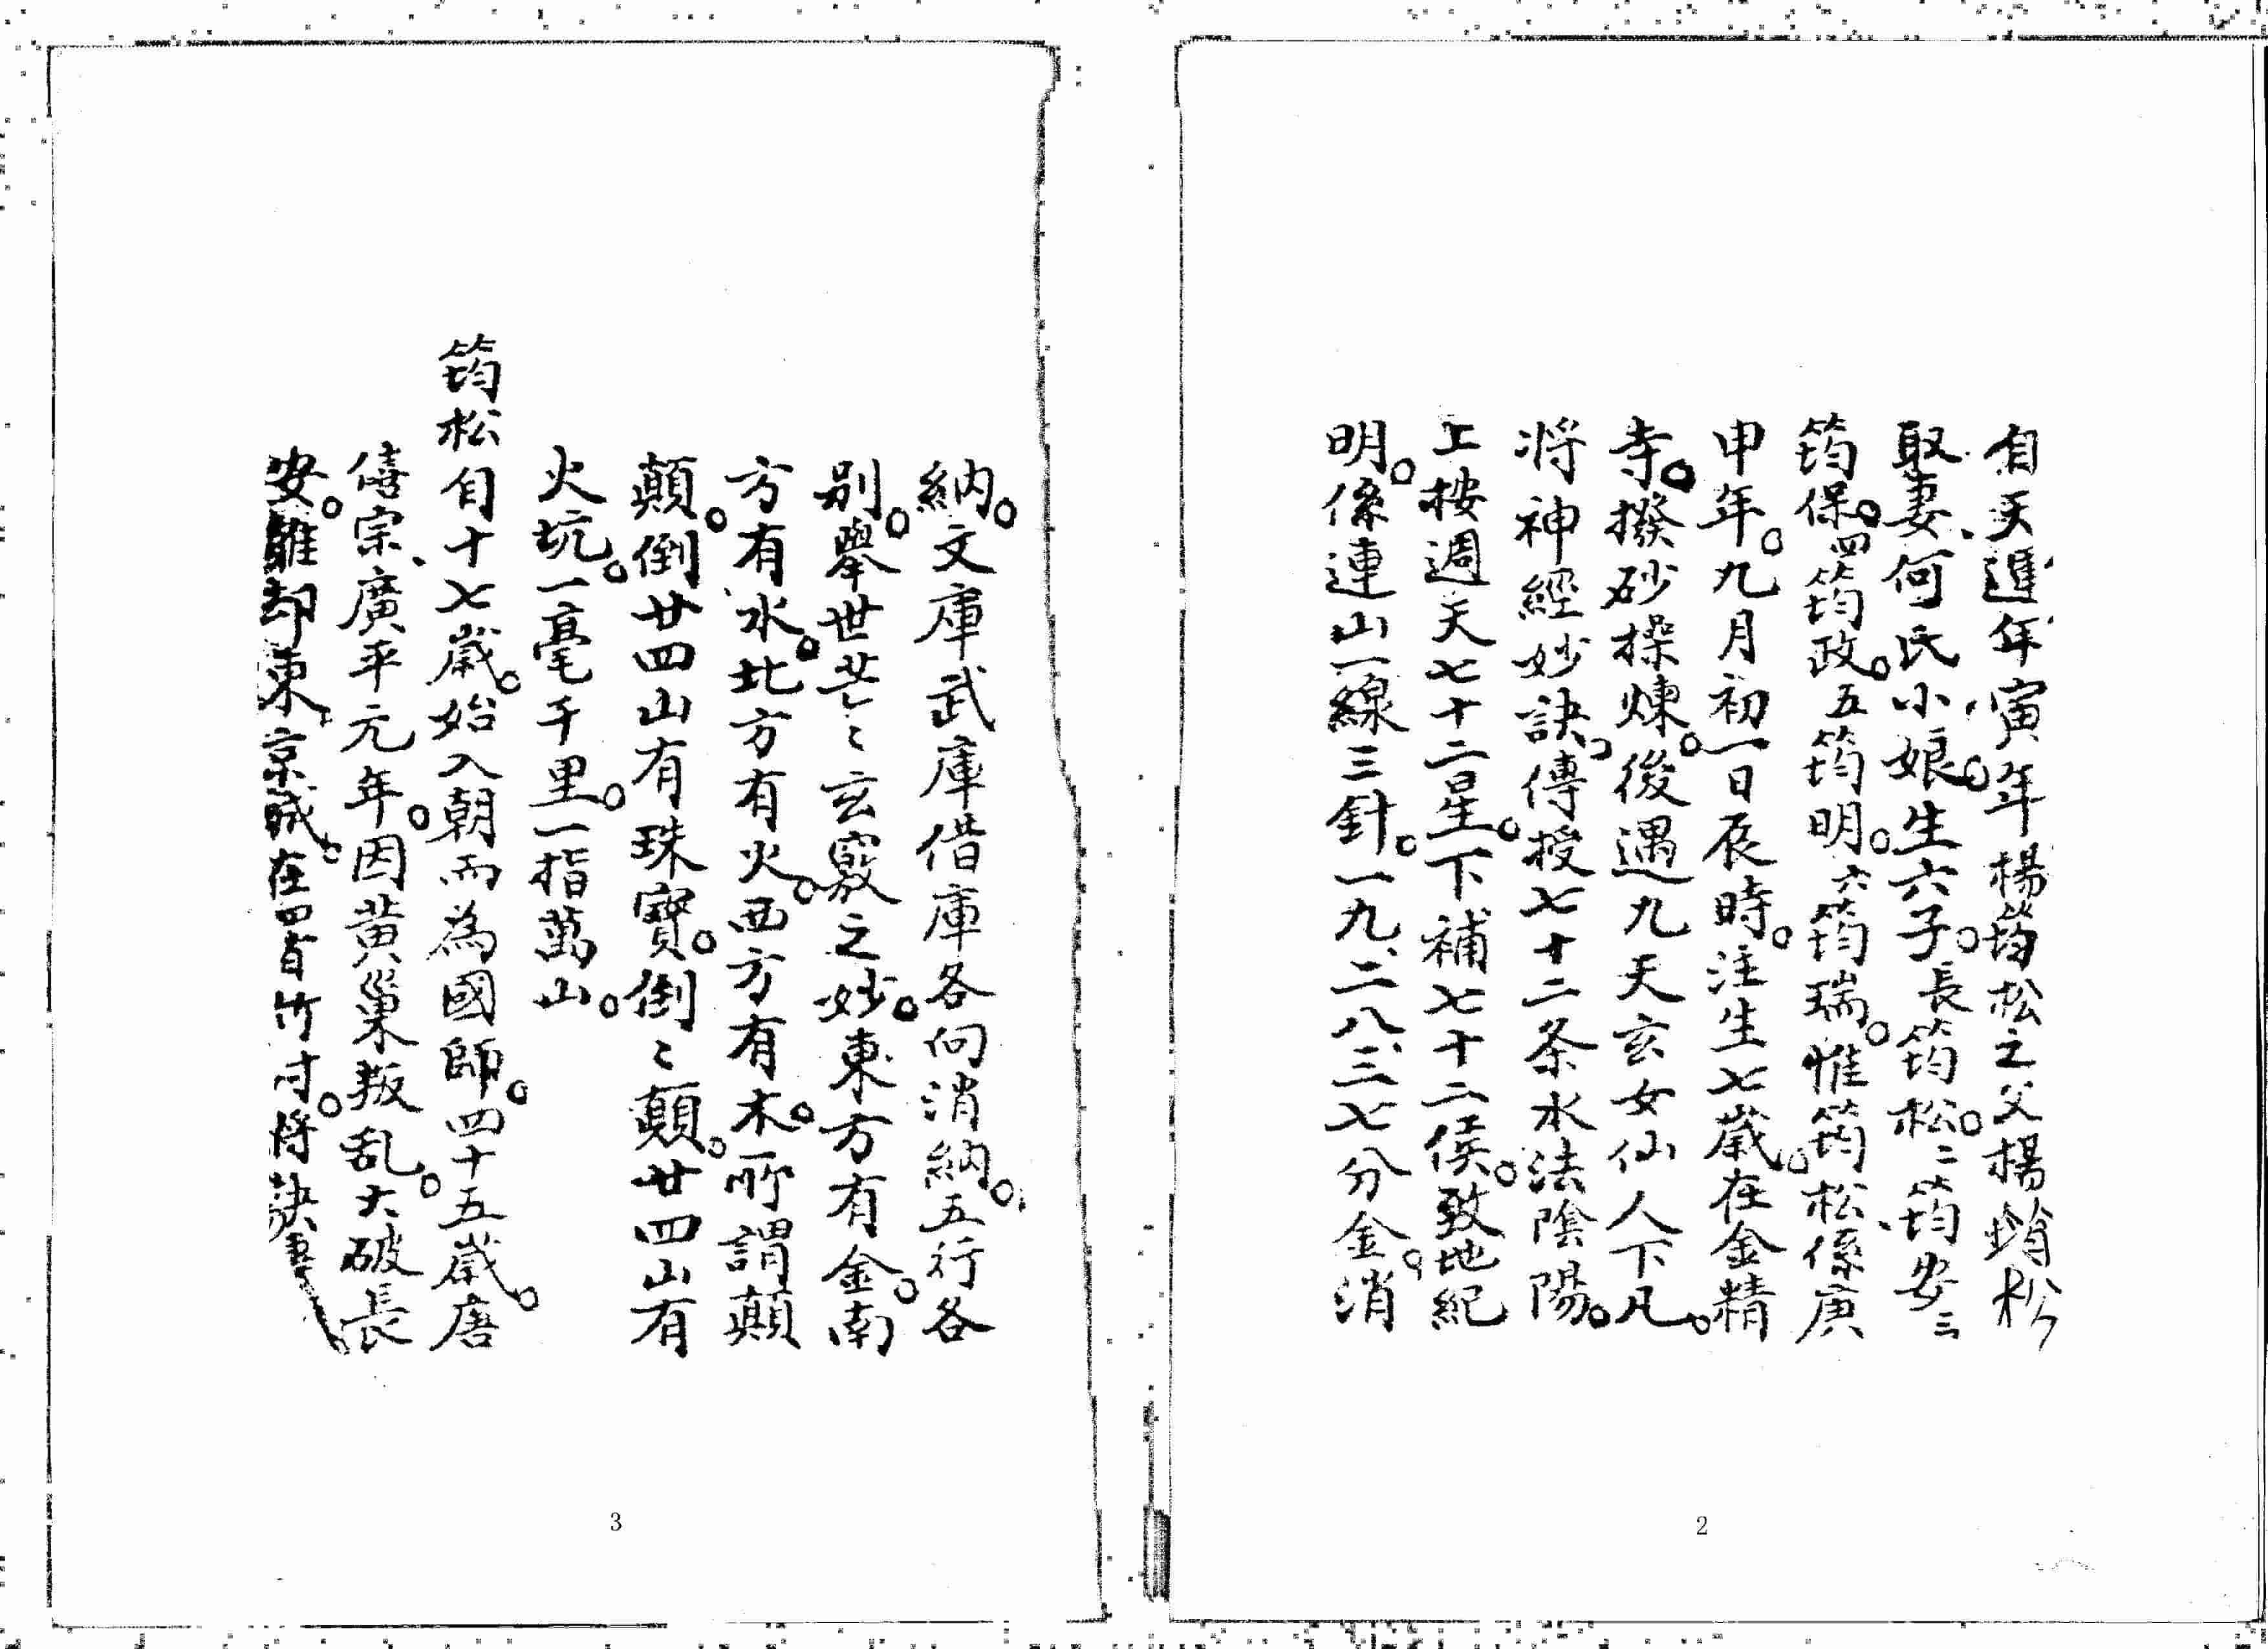 自天進年寅年楊筠松之父楊松
取妻何氏小娘。生六子。長筠松。二筠安三
筠保。四筠政。五筠明。六筠瑞。惟筠松係庚
申年。九月初一日辰時。注生七歲。在金精
寺。撥砂操煉。後遇九天玄女仙人下凡。
將神經妙訣。傳授七十二条水法陰陽。
上按週天七十二星。下補七十二候。致地紀
明。係連山一線三針。一九、二八、三七分金。消
2
納。文庫武庫借庫各向消納。五行各
別。舉世芒々玄竅之妙。東方有金。南
方有水。北方有火。西方有木。所謂顛
顛。倒廿四山有珠寶。倒々顛。廿四山有
火坑。一毫千里。一指萬山。
筠松自十七歲。始入朝而為國師。四十五歲。唐
僖宗、廣平元年。因黃巢叛乱。大破長
安。雖却東京城。在四首竹寸。將訣
3